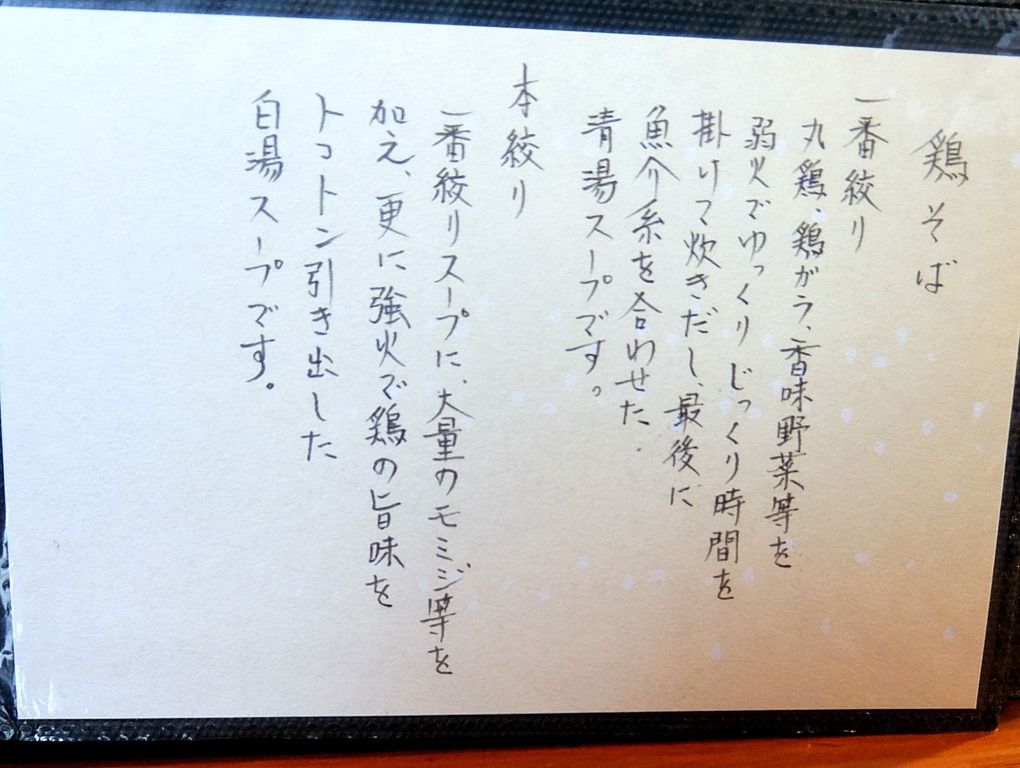 鶏そば
一番絞り
丸鶏、鶏がラ、香味野菜等を
弱火でゆっくりじっくり時間を
掛けて炊きだし、最後に
魚介系を合わせた
清湯スープです。
本絞り
一番絞りスープに、大量のモミジ等を
加え、更に強火で鶏の旨味を
トコトン引き出した
白湯スープです。